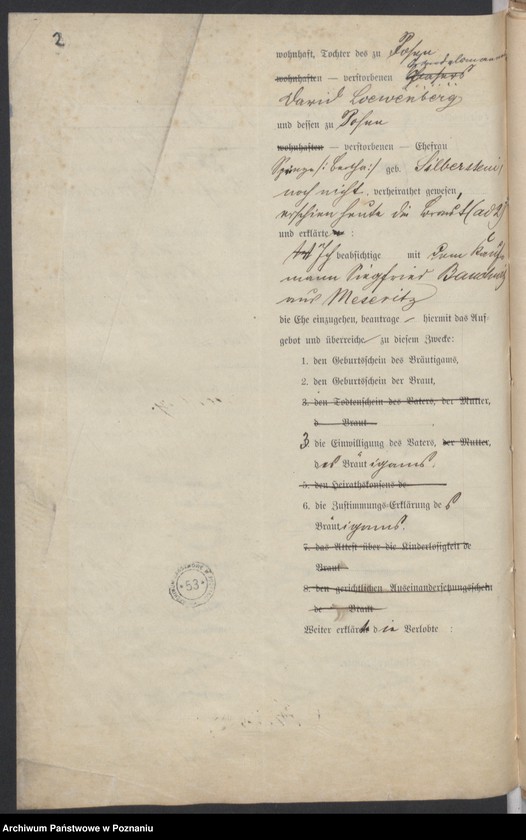 2
wohnhaft, Tochter des zu Posen
wohnhaften — verstorbenen Glasers
David Loewenberg
und dessen zu Posen
wohnhaften — verstorbenen — Ehefrau
(: Bertha :) geb. Silberstein,
noch nicht, verheirathet gewesen,
erschien heute die Braut (ad 2)
und erklärte :
Ich beabsichtige mit dem Kauf-
mann Siegfried
aus Meseritz
die Ehe einzugehen, beantrage hiermit das Auf-
gebot und überreiche zu diesem Zwecke:
1. den Geburtsschein des Bräutigams,
2. den Geburtsschein der Braut,
3. den Todtenschein des Vaters, der Mutter,
d Braut
3. die Einwilligung des Vaters, der Mutter,
des Bräutigams.
5. den Heirathskonsens de
6. die Zustimmungs-Erklärung des
Bräutigams.
7. das Attest über die Kinderlosigkeit de
Braut
8. den gerichtlichen Auseinandersetzungsschein
de Braut
Weiter erklärt die Verlobte :
53
Archiwum Państwowe w Poznaniu